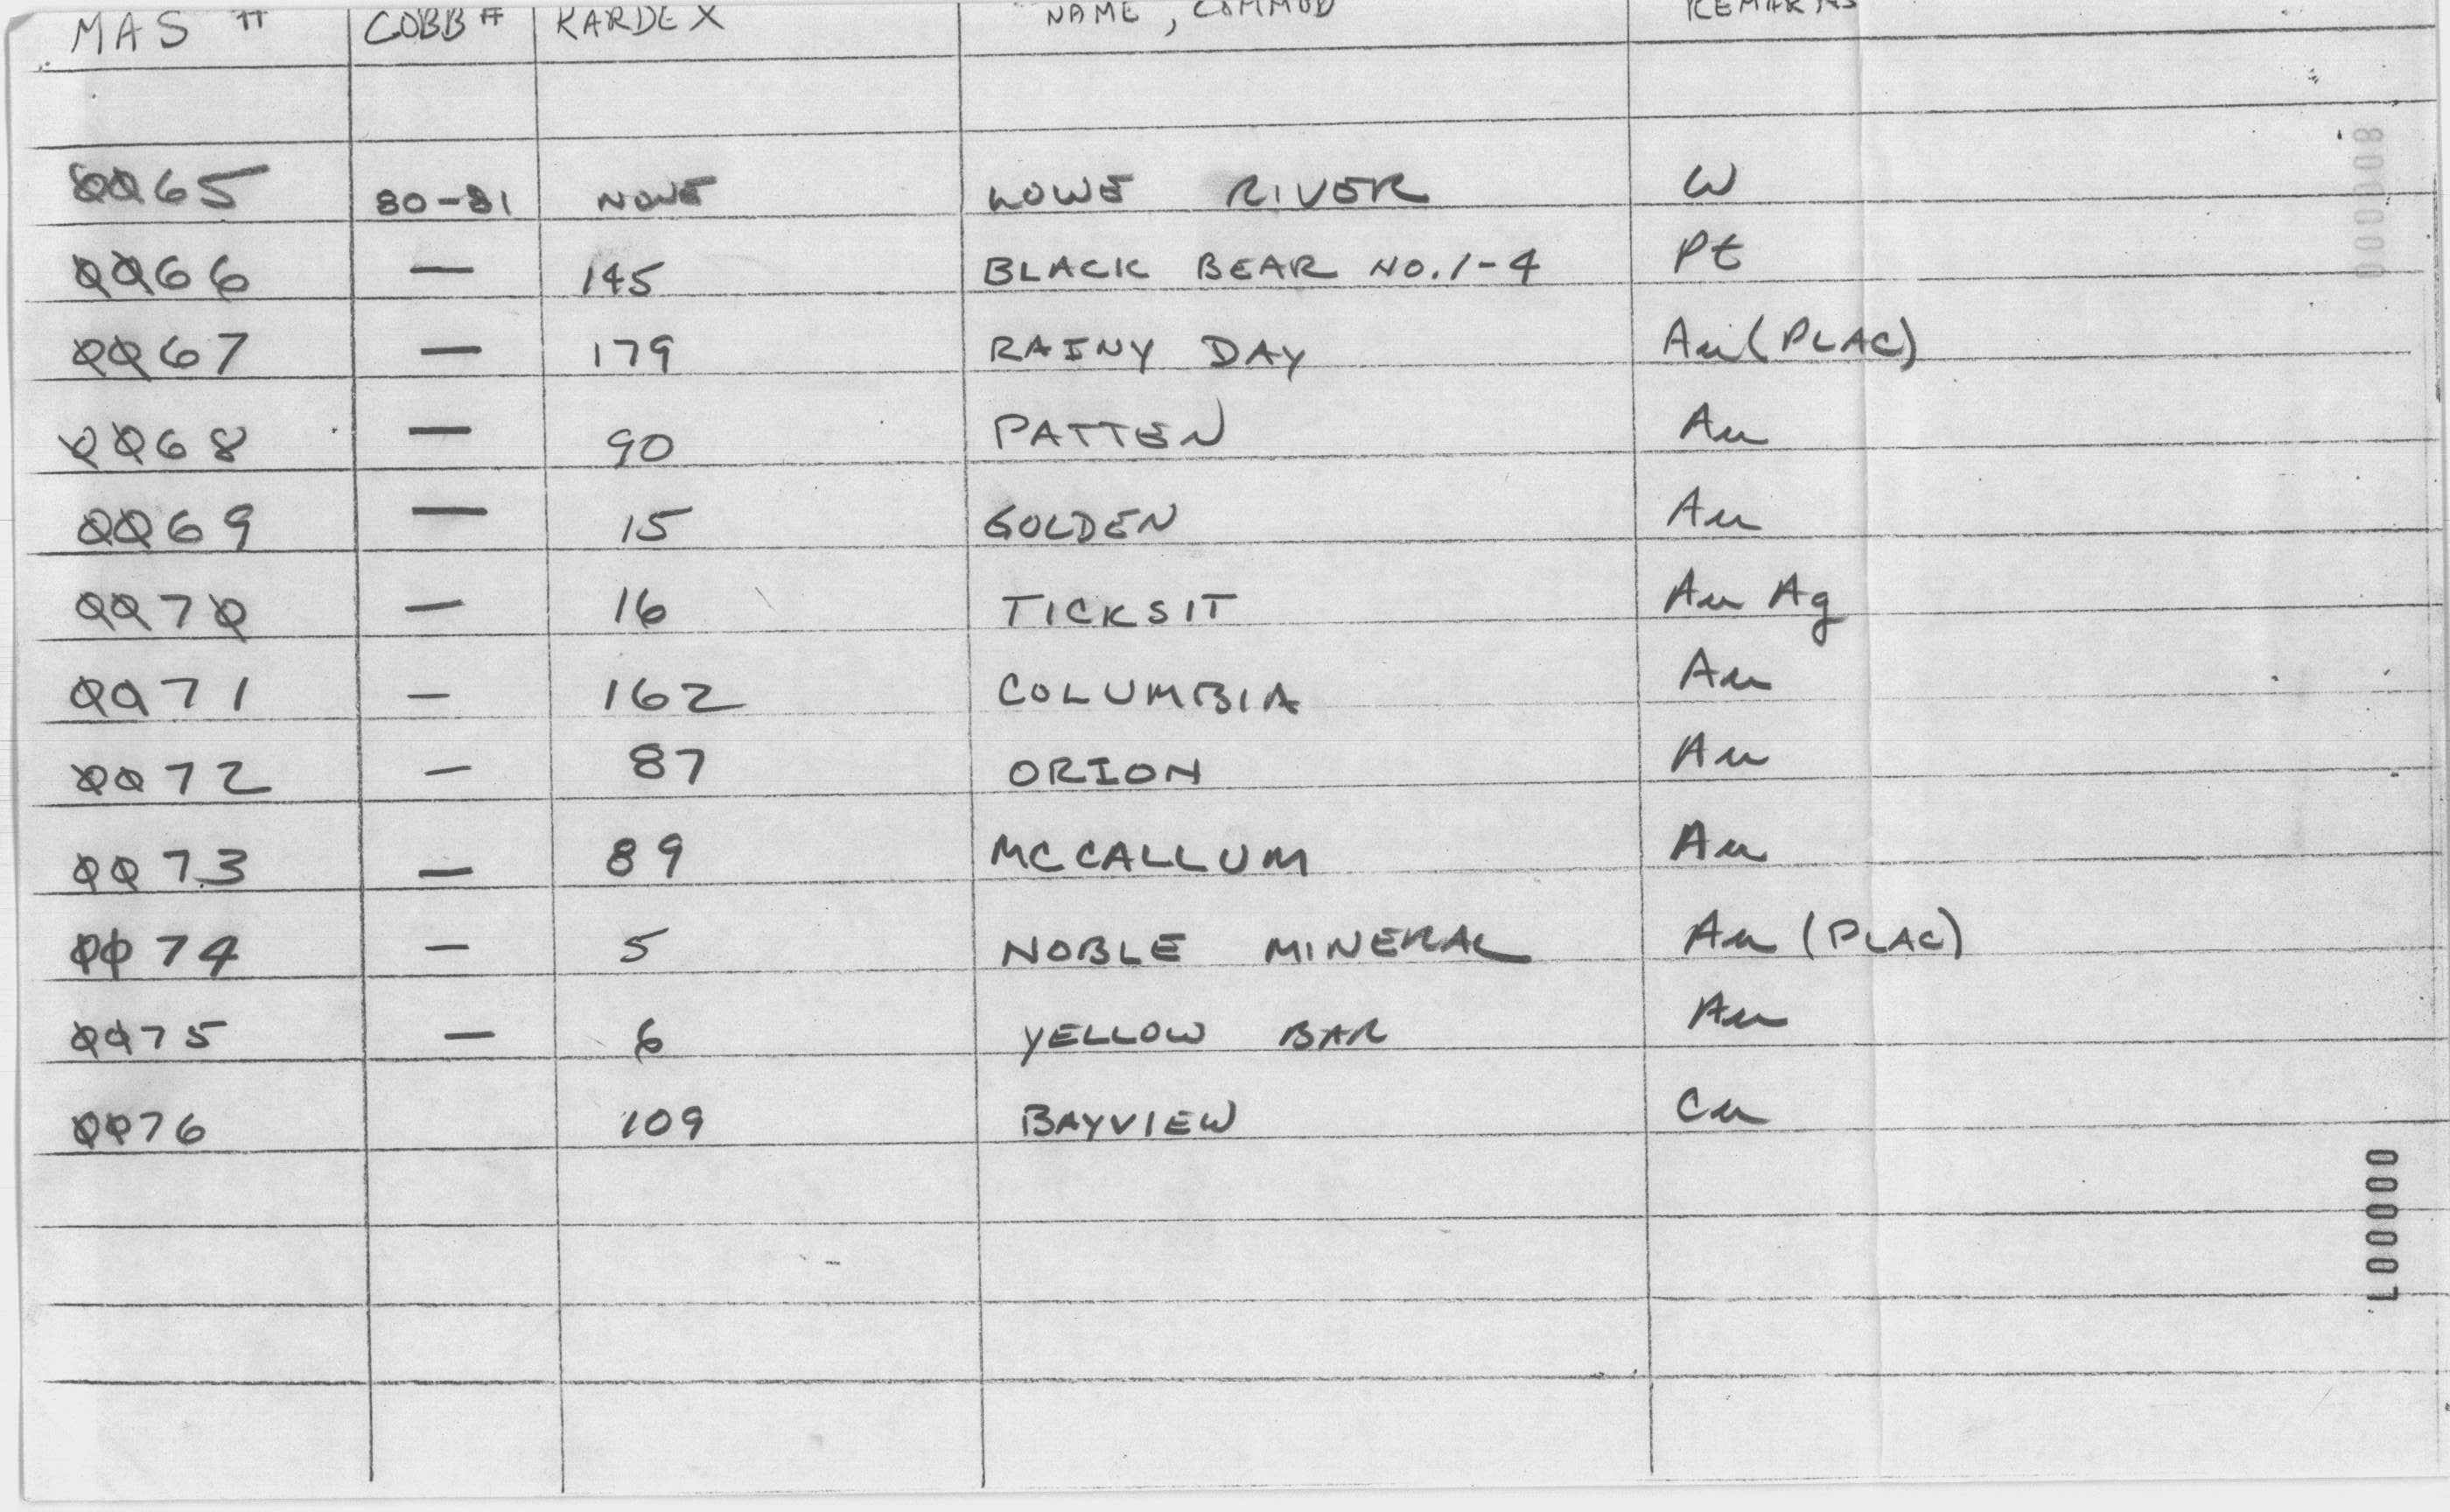 MAS # COBB # KARDEX NAME, COMMOD REMARKS
0065 80-81 NONE LOWE RIVER W
0066 — 145 BLACK BEAR NO. 1-4 Pt
0067 — 179 RAINY DAY Au (PLAC)
0068 — 90 PATTEN Au
0069 — 15 GOLDEN Au
0070 — 16 TICKSIT Au Ag
0071 — 162 COLUMBIA Au
0072 — 87 ORION Au
0073 — 89 MCCALLUM Au
0074 — 5 NOBLE MINERAL Au (PLAC)
0075 — 6 YELLOW BAR Au
0076 109 BAYVIEW Cu
000008
000007